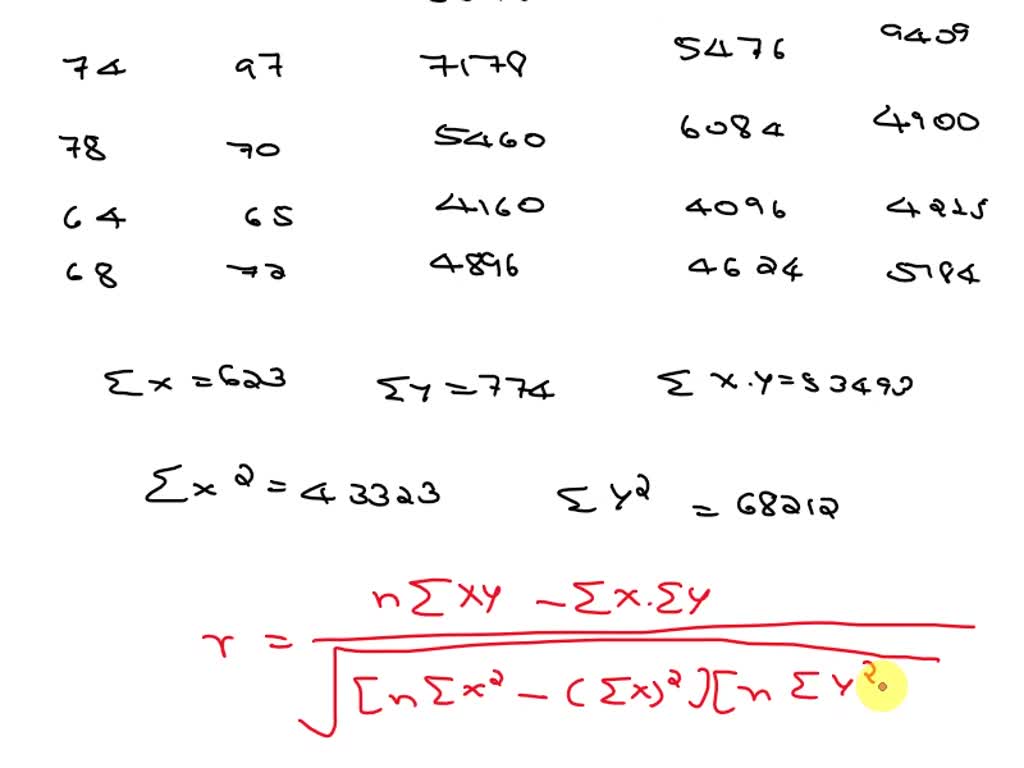 74 97 7178 5476 9409
78 70 5460 6084 4900
64 65 4160 4096 4225
68 72 4896 4624 5184
Σx = 623 Σy = 774 Σx.y = 53493
Σx² = 43323 Σy² = 68212
nΣxy - Σx.Σy
r =
√[nΣx² - (Σx)²][nΣy²